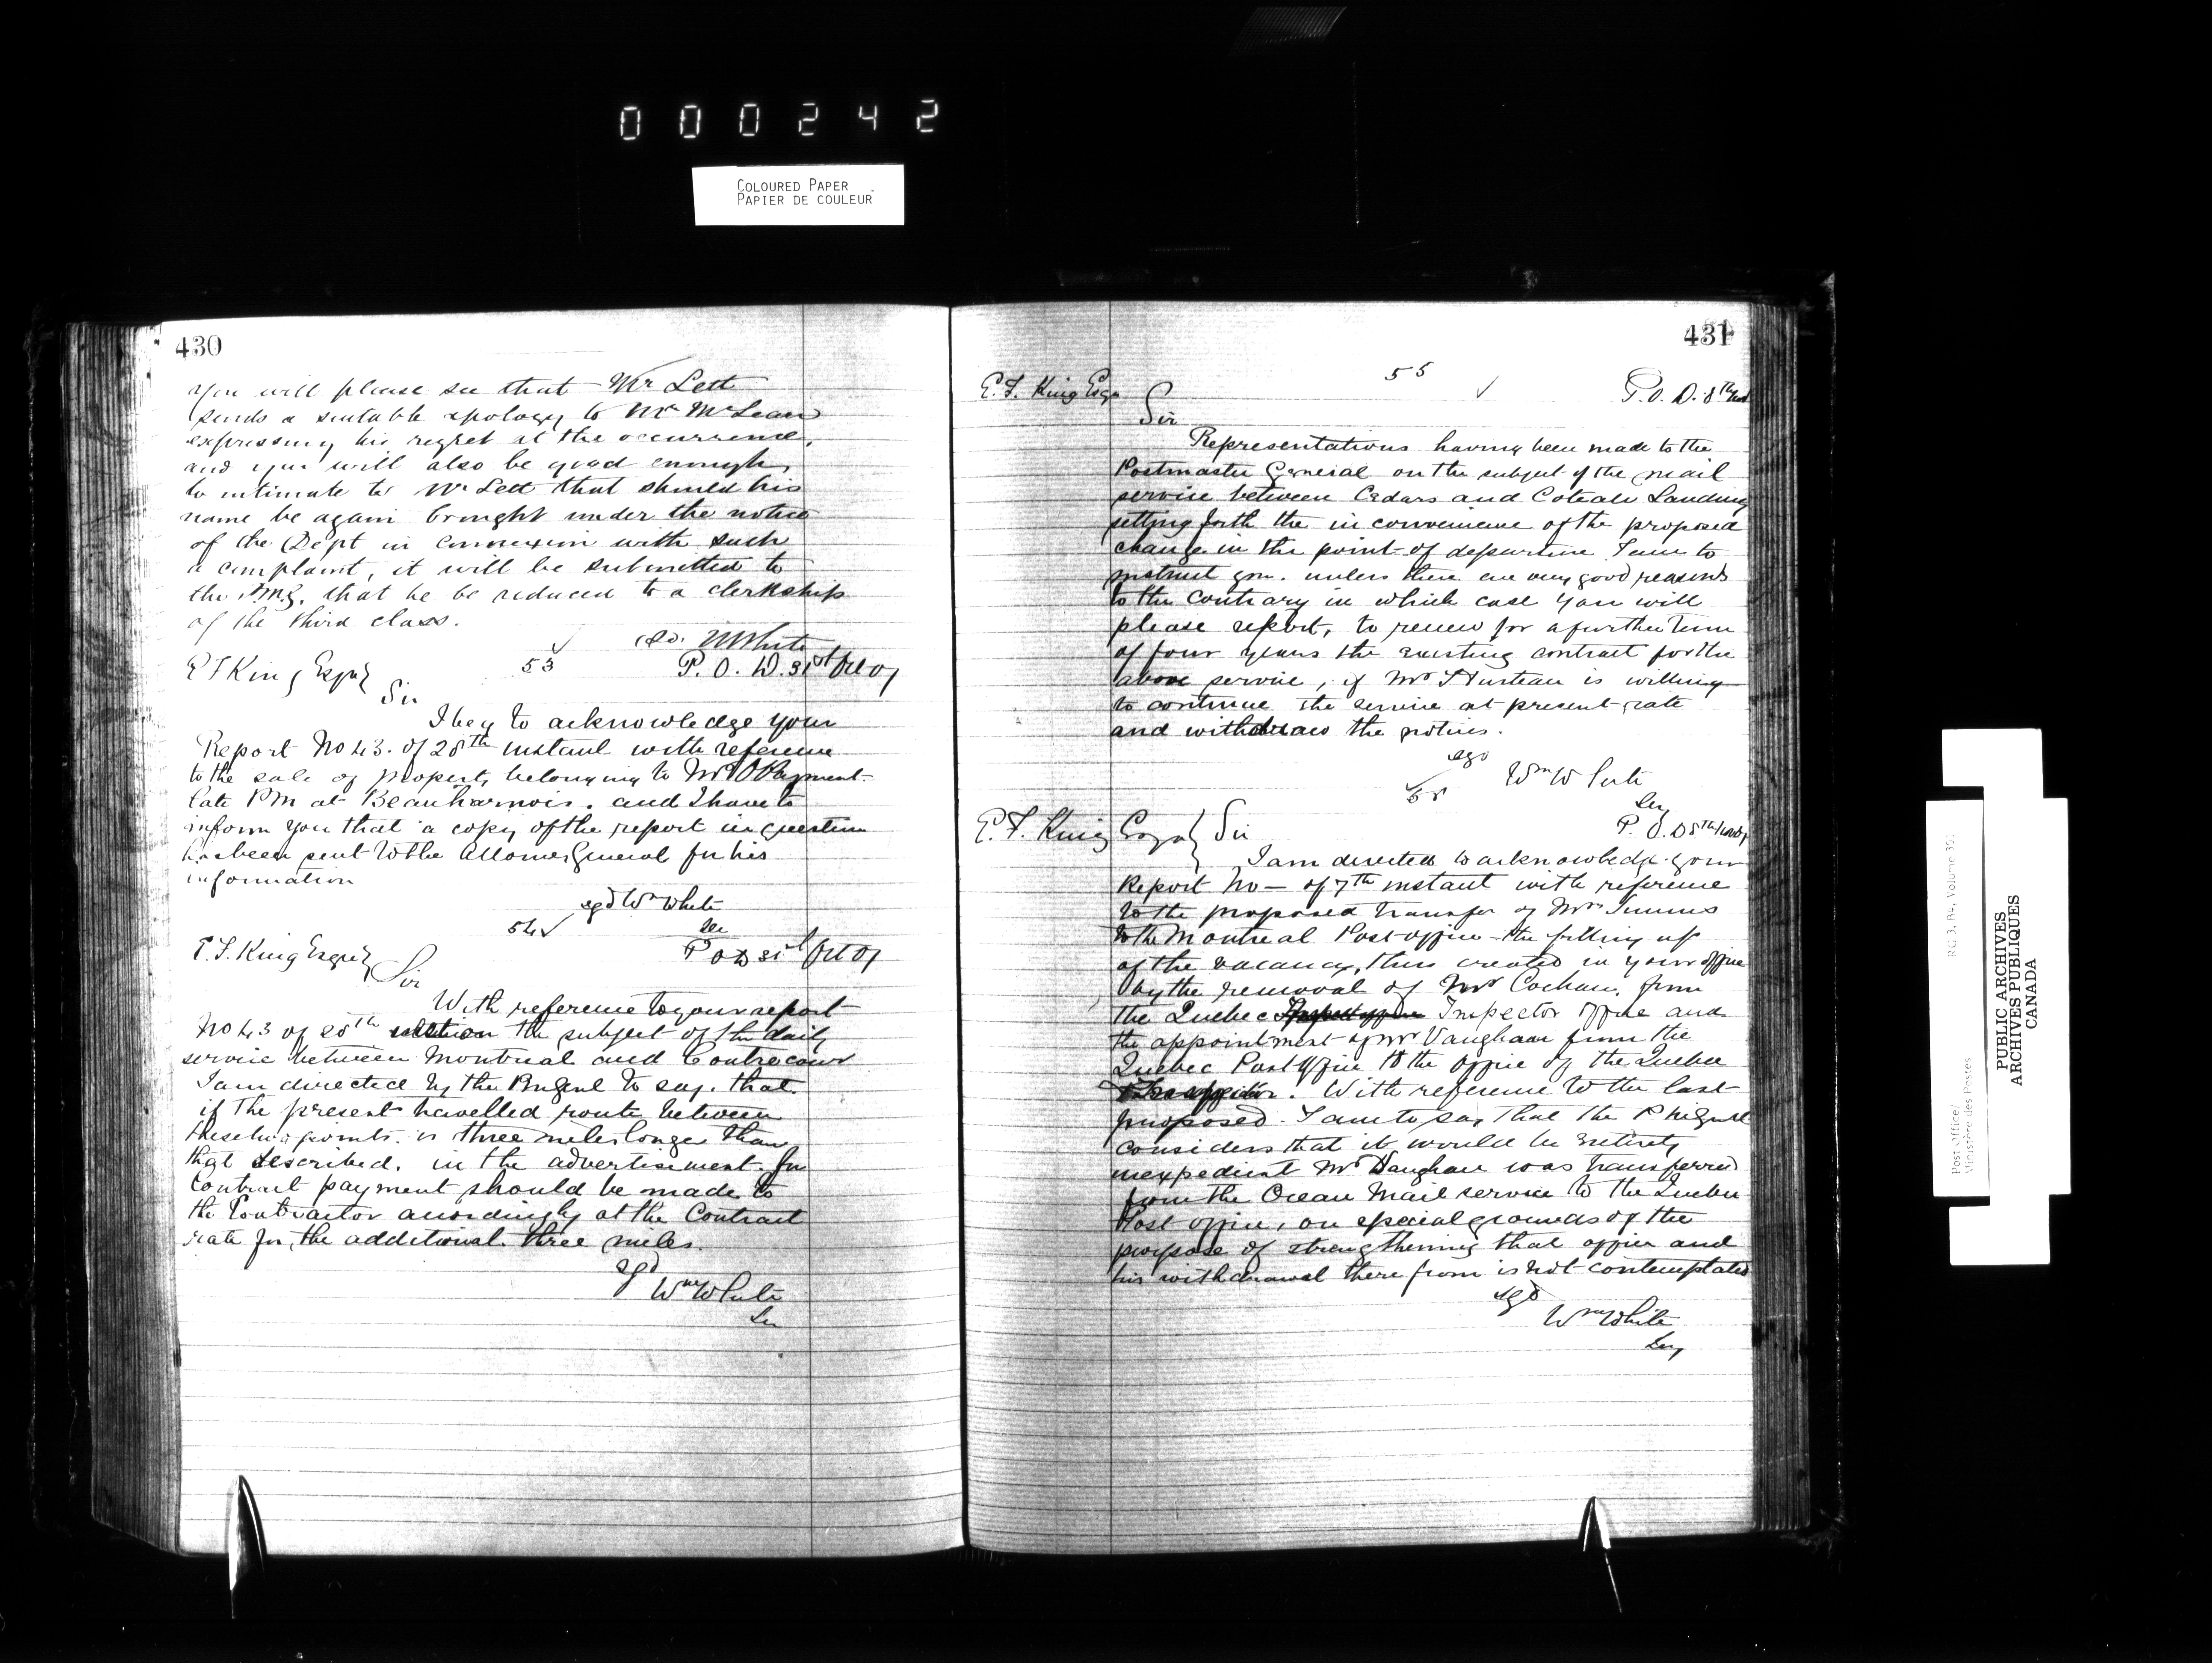 000242
COLOURED PAPER
PAPIER DE COULEUR
430
You will please see that Mr Lett
sends a suitable apology to Mr McLean
expressing his regret at the occurrence,
and you will also be good enough
to intimate to Mr Lett that should his
name be again brought under the notice
of the Dept in connexion with such
a complaint, it will be submitted to
the P.M.G. that he be reduced to a clerkship
of the third class.
White
E F King Esqre 53 P. O. D. 31st Oct
Sir
I beg to acknowledge your
Report No 43. of 28th instant with reference
to the sale of property belonging to Mr
late PM at Beauharnois. and I have to
inform you that a copy of the report in question
has been sent to the General for his
information
sgd Wm White
Sec
54
E. F. King Esqre P O D 31st Oct
Sir
With reference to your report
No 43 of 28th on the subject of the daily
service between Montreal and Contrecoeur
I am directed by the to say. that
if the present travelled route between
these two points. is three miles longer than
that described. in the advertisement. for
Contract payment should be made to
the Contractor accordingly at the Contract
rate for the additional three miles.
sgd
Wm White
Sec
431
55
E. F. King Esqre P. O. D. 8th
Sir
Representations having been made to the
Postmaster General on the subject of the mail
service between Cedars and Coteau Landing
setting forth the in convenience of the proposed
change in the point of departure I am to
instruct you. unless there are very good reasons
to the contrary in which case you will
please report, to renew for a further term
of four years the existing contract for the
above service, if Mr is willing
to continue the service at present rate
and withdraw the notices.
sgd
Wm White
Secy
P. O. D 8th
E. F. King Esqre Sir
I am directed to acknowledge your
Report No — of 7th instant with reference
to the proposed transfer of Mr
to the Montreal Post office the filling up
of the vacancy, thus created in your office
by the removal of Mr from
the Quebec Inspector office and
the appointment of Mr Vaughan from the
Quebec Post Office to the office of the Quebec
. With reference to the last
proposed. I am to say that the
considers that it would be entirely
inexpedient Mr Vaughan was transferred
from the Ocean Mail service to the Quebec
Post office, on special grounds of the
purpose of strengthening that office and
his withdrawal there from is not contemplated
sgd
Wm White
Secy
Post Office/
Ministère des Postes
RG 3, B4, Volume 351
PUBLIC ARCHIVES
ARCHIVES PUBLIQUES
CANADA